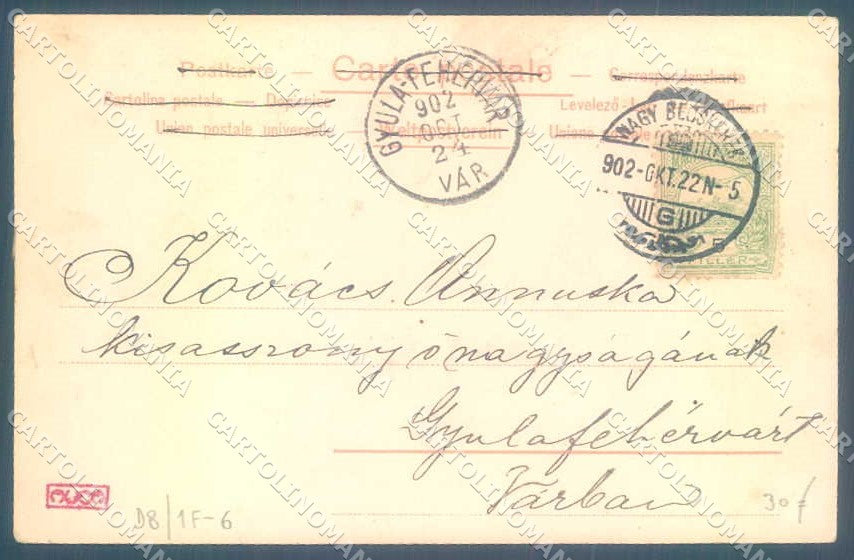 Postkarte — Carte postale — Correspondenzkarte
Cartolina postale — Dopisnice
Levelező-
Union postale universelle Weltpostverein Union
GYULA-FEHÉRVÁR
902
OKT
24
VÁR
NAGY BECSKEREK
902-OKT.22N-5
G
5
FILLÉR
Kovács Annuska
kisasszony őnagyságának
Gyulafehérvárt
Várban
D8/1F-6
30
CARTOLINOMANIA